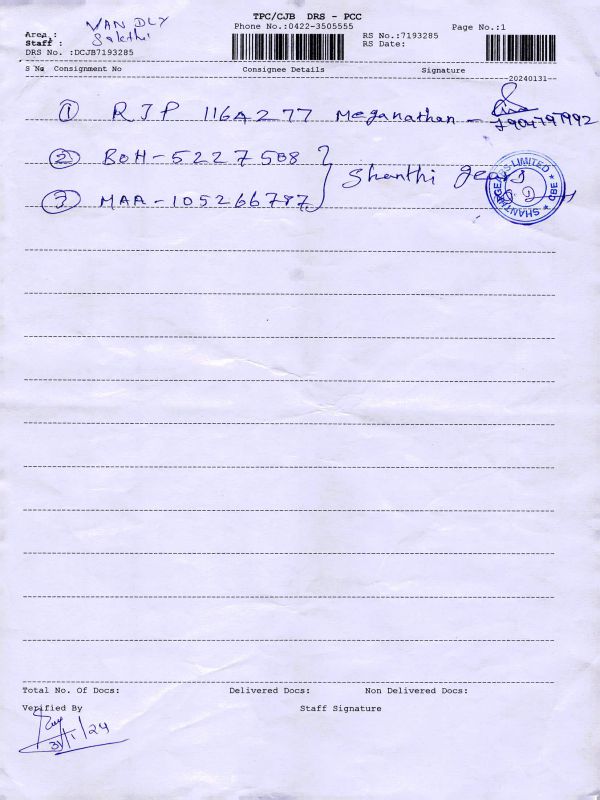 TPC/CJB DRS - PCC
Phone No.:0422-3505555 Page No.:1
Area : VAN DLY
Staff : Sakthi
RS No.:7193285
RS Date:
DRS No. :DCJB7193285
S No Consignment No Consignee Details Signature
20240131
① RJP 116A277 Meganathan -
② BOH-5227508
③ MAA-105266787 Shanthi gears
SHANTHI GEARS LIMITED ★ CBE ★
Total No. Of Docs: Delivered Docs: Non Delivered Docs:
Verified By Staff Signature
31/1/24